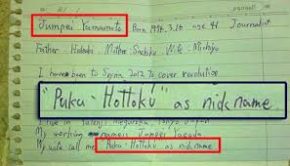 Jumpei Yamamoto Born 1974.3.16 age 41 Journalist
Father Hideaki Mother Sachiko
I have been to Syria 2012 To cover revolution
"Puku-Hottoku" as nick name
Tokyo
My working name is Jumpei Yasuda
My wife call me "Puku-Hottoku" as nick name